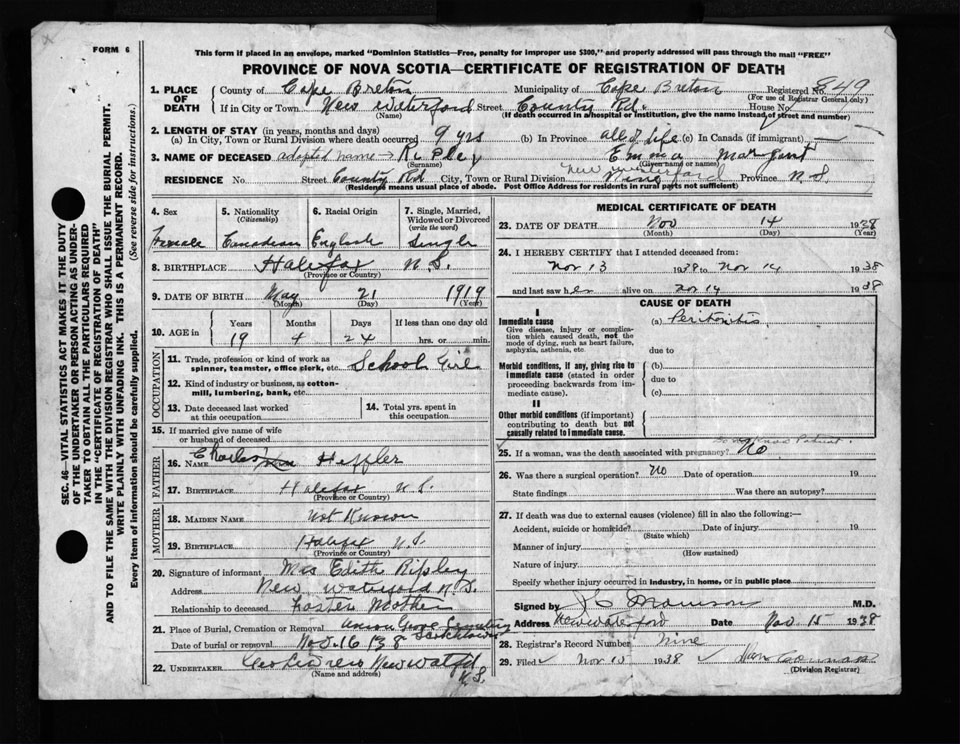 FORM 6
This form if placed in an envelope, marked "Dominion Statistics—Free, penalty for improper use $300," and properly addressed will pass through the mail "FREE"
PROVINCE OF NOVA SCOTIA—CERTIFICATE OF REGISTRATION OF DEATH
1. PLACE OF DEATH County of Cape Breton Municipality of Cape Breton Registered No. 849
(For use of Registrar General only)
If in City or Town New Waterford Street County Rd. House No.
(Name) (If death occurred in a hospital or institution, give the name instead of street and number)
2. LENGTH OF STAY (in years, months and days)
(a) In City, Town or Rural Division where death occurred 9 yrs (b) In Province all of life (c) In Canada (if immigrant) —
3. NAME OF DECEASED adopted name → Ripley Emma Margaret
(Surname) (Given name or names)
RESIDENCE No. Street County Rd City, Town or Rural Division New Waterford Province N.S.
(Residence means usual place of abode. Post Office Address for residents in rural parts not sufficient)
SEC. 46—VITAL STATISTICS ACT MAKES IT THE DUTY
OF THE UNDERTAKER OR PERSON ACTING AS UNDER-
TAKER TO OBTAIN ALL THE PARTICULARS REQUIRED
IN THE "CERTIFICATE OF REGISTRATION OF DEATH"
AND TO FILE THE SAME WITH THE DIVISION REGISTRAR WHO SHALL ISSUE THE BURIAL PERMIT.
WRITE PLAINLY WITH UNFADING INK. THIS IS A PERMANENT RECORD.
Every item of information should be carefully supplied. (See reverse side for instructions.)
4. Sex 5. Nationality (Citizenship) 6. Racial Origin 7. Single, Married, Widowed or Divorced (write the word)
Female Canadian English Single
8. BIRTHPLACE Halifax N.S.
(Province or Country)
9. DATE OF BIRTH May 21 1919
(Month) (Day) (Year)
10. AGE in Years Months Days If less than one day old
19 4 24 hrs. or min.
OCCUPATION
11. Trade, profession or kind of work as spinner, teamster, office clerk, etc. School Girl
12. Kind of industry or business, as cotton-mill, lumbering, bank, etc.
13. Date deceased last worked at this occupation
14. Total yrs. spent in this occupation
15. If married give name of wife or husband of deceased
FATHER
16. NAME Charles Heffler
17. BIRTHPLACE Halifax N.S.
(Province or Country)
MOTHER
18. MAIDEN NAME Not Known
19. BIRTHPLACE Halifax N.S.
(Province or Country)
20. Signature of informant Mrs Edith Ripley
Address New Waterford N.S.
Relationship to deceased Foster Mother
21. Place of Burial, Cremation or Removal Grove Cemetery
Date of burial or removal Nov 16 / 38
22. UNDERTAKER
(Name and address) N.S.
MEDICAL CERTIFICATE OF DEATH
23. DATE OF DEATH Nov 14 1938
(Month) (Day) (Year)
24. I HEREBY CERTIFY that I attended deceased from:
Nov 13 1938 to Nov 14 1938
and last saw her alive on Nov 14 1938
CAUSE OF DEATH
I
Immediate cause (a) Peritonitis
Give disease, injury or complication which caused death, not the mode of dying, such as heart failure, asphyxia, asthenia, etc.
due to
Morbid conditions, if any, giving rise to immediate cause (stated in order proceeding backwards from immediate cause).
(b)
due to
(c)
II
Other morbid conditions (if important) contributing to death but not causally related to immediate cause.
25. If a woman, was the death associated with pregnancy? No
26. Was there a surgical operation? No Date of operation 19
State findings Was there an autopsy?
27. If death was due to external causes (violence) fill in also the following:—
Accident, suicide or homicide? Date of injury 19
(State which)
Manner of injury
(How sustained)
Nature of injury
Specify whether injury occurred in industry, in home, or in public place
Signed by M.D.
Address New Waterford Date Nov 15 1938
28. Registrar's Record Number Nine
29. Filed Nov 15 1938
(Division Registrar)